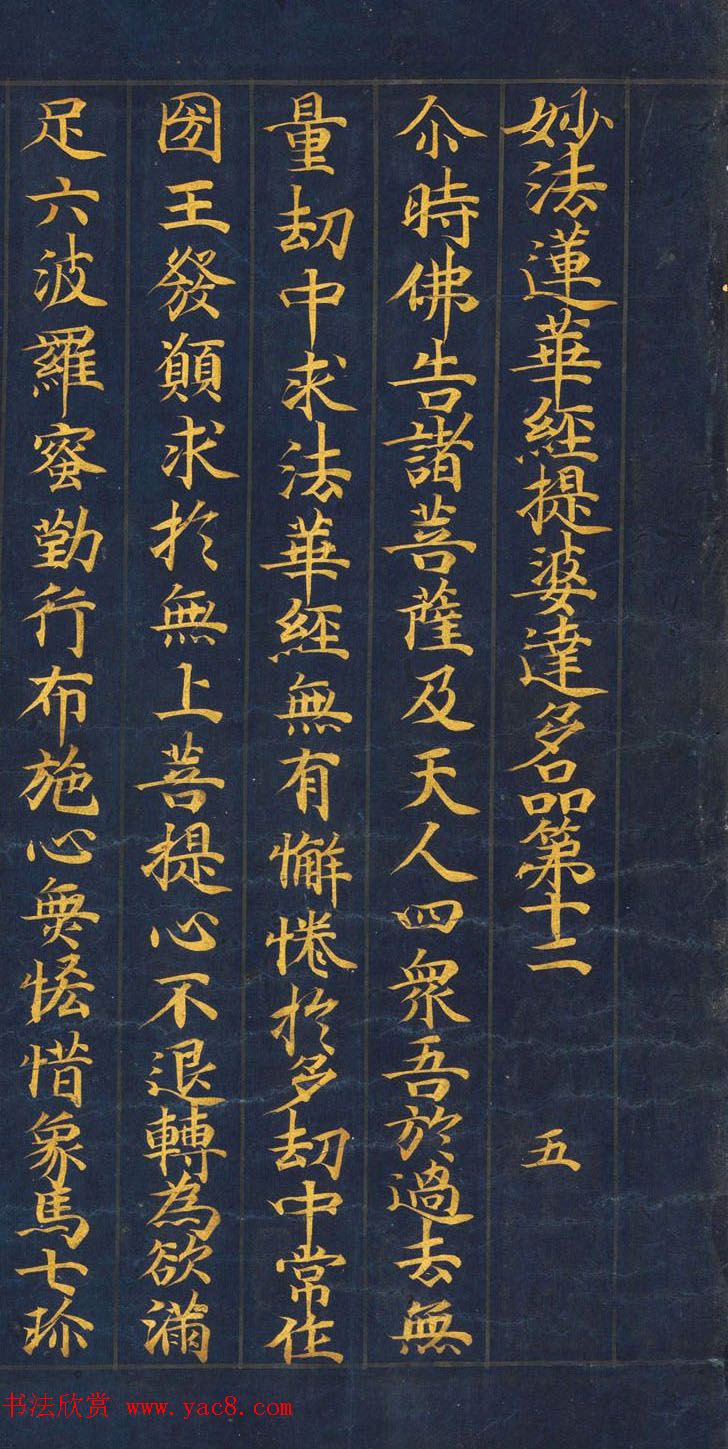 妙法蓮華經提婆達多品第十二 五
尒時佛告諸菩薩及天人四衆吾於過去無
量劫中求法華經無有懈惓於多劫中常作
囶王發願求於無上菩提心不退轉為欲滿
足六波羅蜜勤行布施心無悋惜象馬七珎
书法欣赏 www.yac8.com